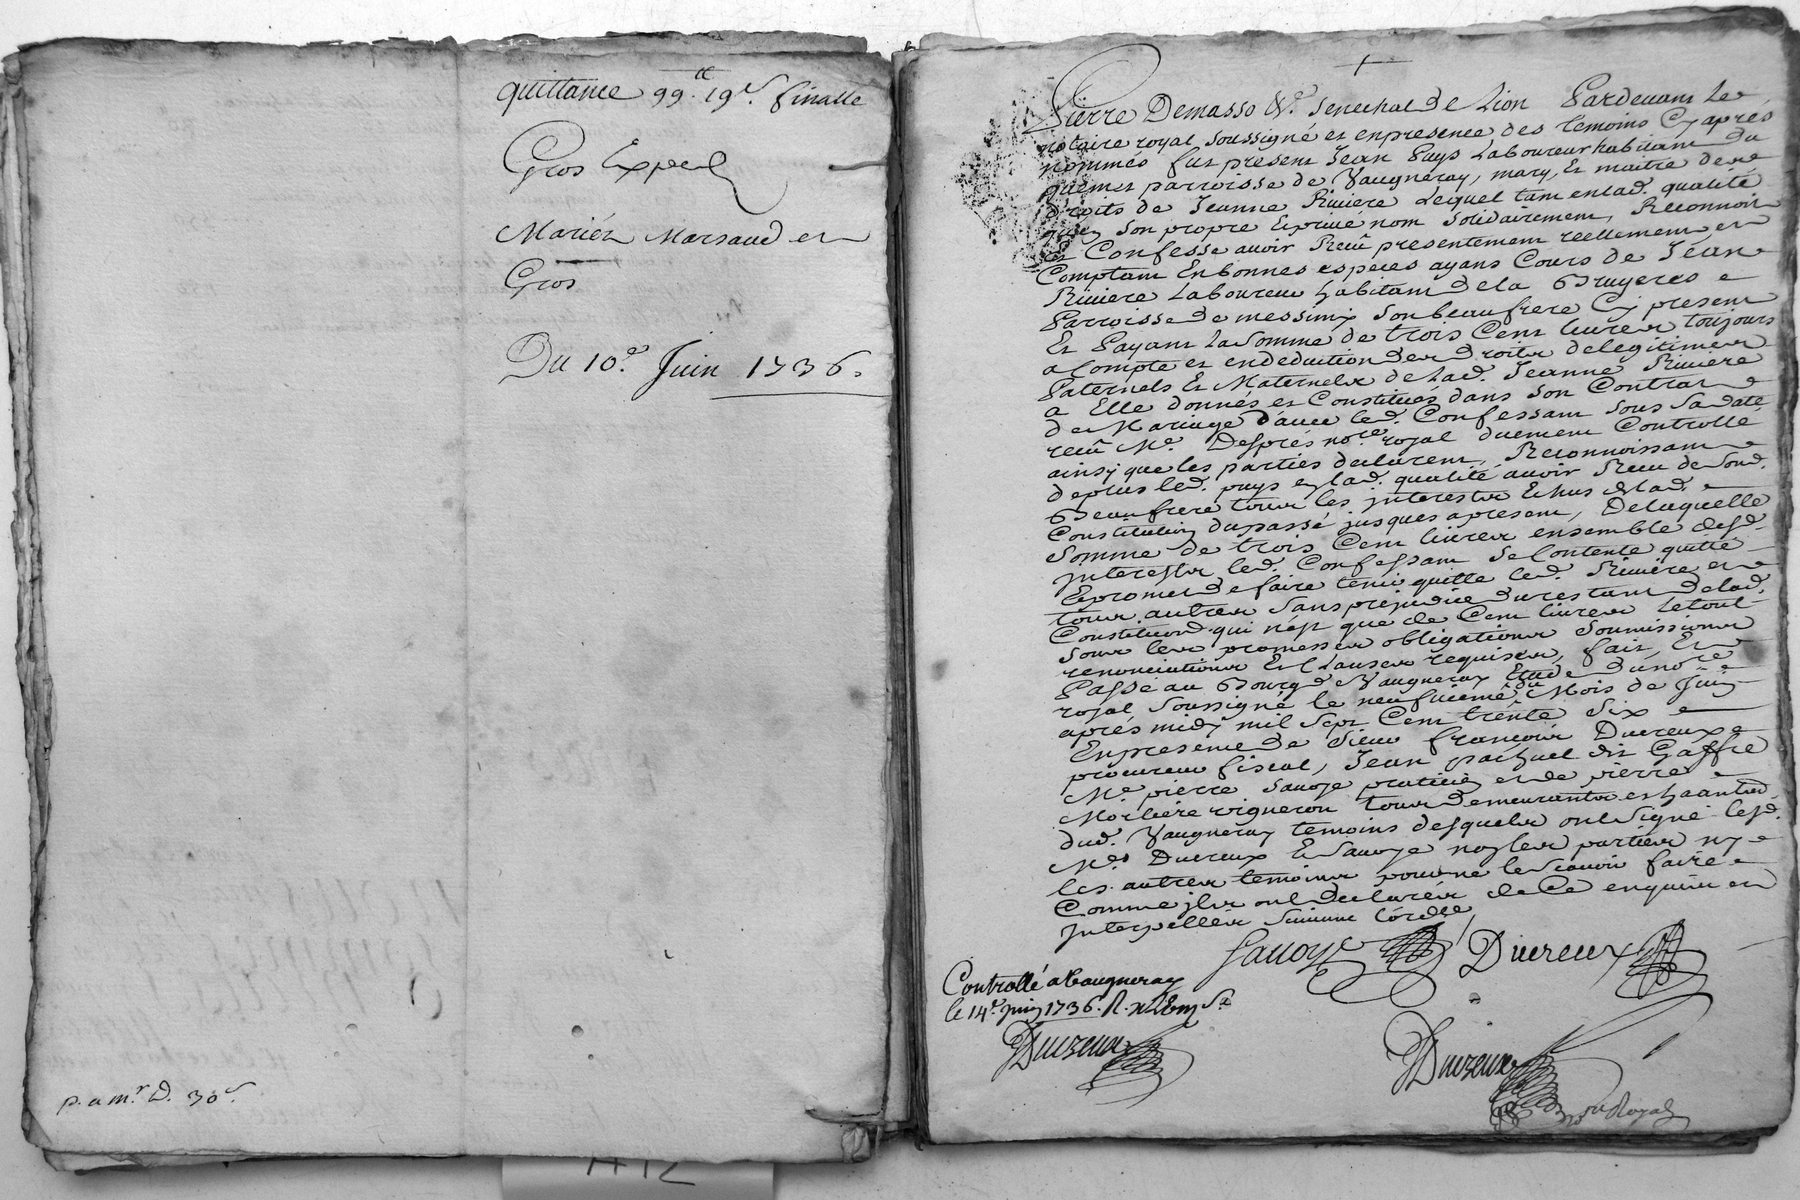 quittance 99.ll 19.s finalle
Gros Exped
Mariéz Marsaud et
Gros
Du 10.e Juin 1736.
p. a mr. D. 30s.
Pierre Demasso &c. Senechal de Lion Pardevant le
notaire royal soussigné et en presence des temoins Cy après
nommés fut present Jean Pays Laboureur habitant du
parroisse de Vaugneray, mary, Et maitre de
droits de Jeanne Riviere Lequel tant en lad. qualité
son propre Eprivé nom Solidairement, Reconnoit
Et Confesse avoir Reçû presentement reellement et
Comptant En bonnes especes ayans Cours de Jean
Riviere Laboureur habitant de la Bruyeres
Parroisse de messimy Son beaufrere Cy present
Et Payant La Somme de trois Cent livres toujours
a Compte et en deduction des droits de legitimes
Paternels Et Maternels de Lad. Jeanne Riviere
a Elle donnés et Constitués dans son Contrat
de Mariage d'avec led. Confessant Sous Sa date
recû Me. Desprès nore. royal duement Controllé
ainsy que les parties declarent, Reconnoissant
deplus led. pays en lad. qualité avoir Receu de Sond.
Beaufrere tous les interests Echus de lad.
Constitution du passé jusques a present, De laquelle
Somme de trois Cent livres ensemble desd.
interests led. Confessant Se Contente quitte
Epromet de faire tenir quitte led. Riviere et
tous autres Sans prejudice du restant de lad.
Constitution qui n'est que de Cent livres Le tout
Sous les promesses obligations Soumissions
renonciations Et Clauses requises, fait, Et
Passé au Bourg de Vaugneray Etude du nore
royal Soussigné le neufvieme du Mois de Juin
après midy mil Sept Cent trente Six
En presence de Sieur françois Ducreux
procureur fiscal, Jean paschuel dit Gaffre
Me. pierre Savoye praticien et de pierre
Morliere vigneron tous demeurants et habitants
dud. Vaugneray temoins desquels ont Signé lesd.
Mes. Ducreux Et Savoye non les parties ny
les autres temoins pour ne le Scavoir faire
Comme ils ont declarés de Ce enquis et
Interpellés Suivant l'ordce.
Savoye Ducreux
Controllé a Vaugneray
le 14.e juin 1736. R.
Ducreux
Ducreux
nore Royal